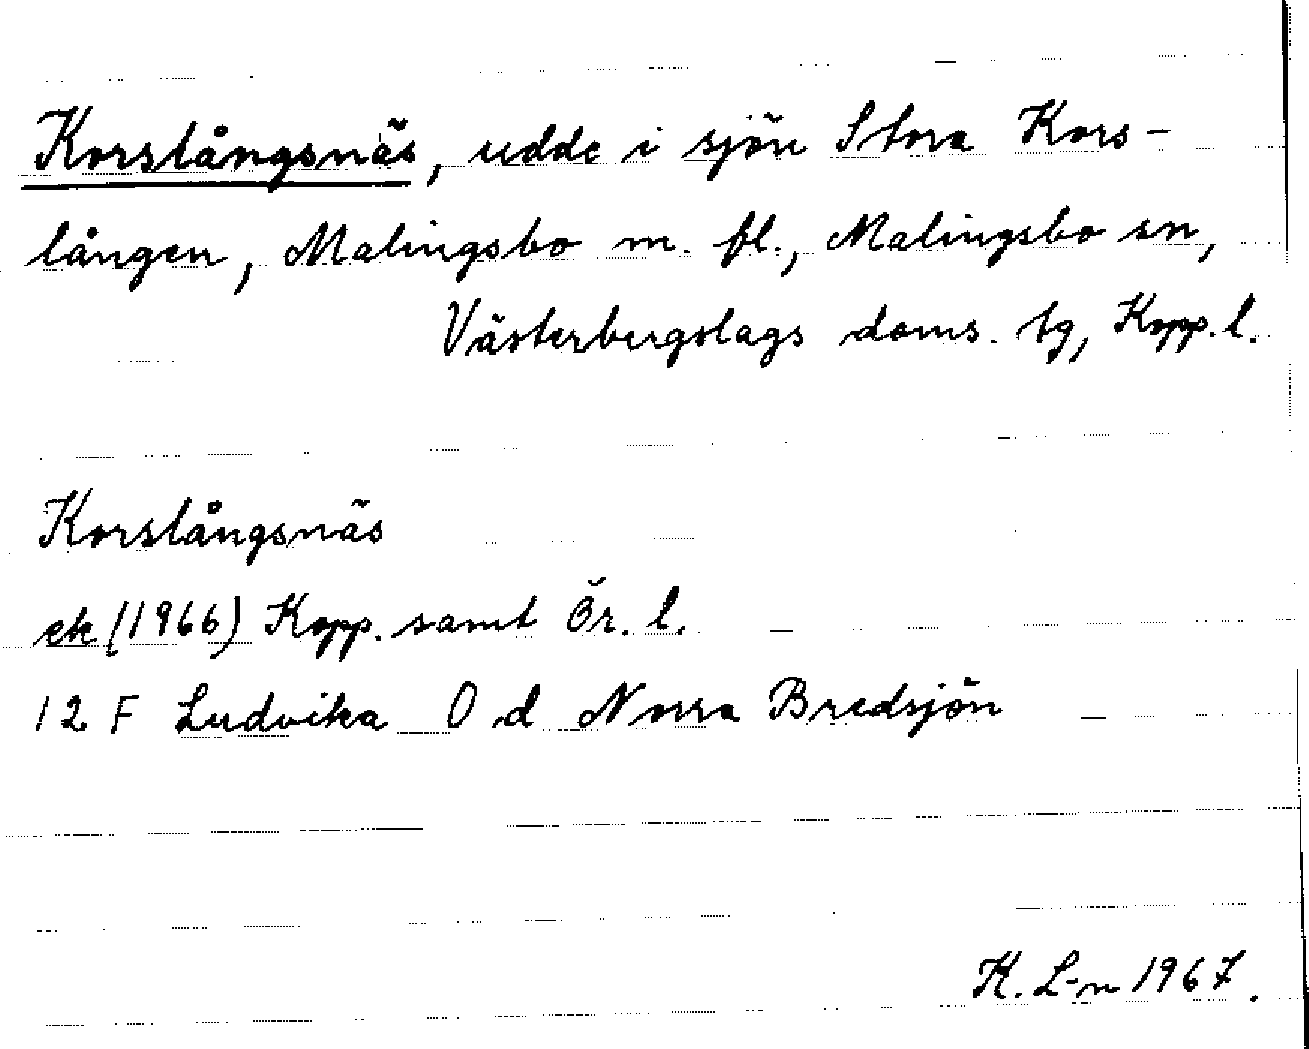 Korslångsnäs, udde i sjön Stora Kors-
lången, Malingsbo m. fl., Malingsbo sn,
Västerbergslags doms. tg, Kopp. l.
Korslångsnäs
ek (1966) Kopp. samt Ör. l.
12 F Ludvika 0 d Norra Bredsjön
K. L-n 1967.